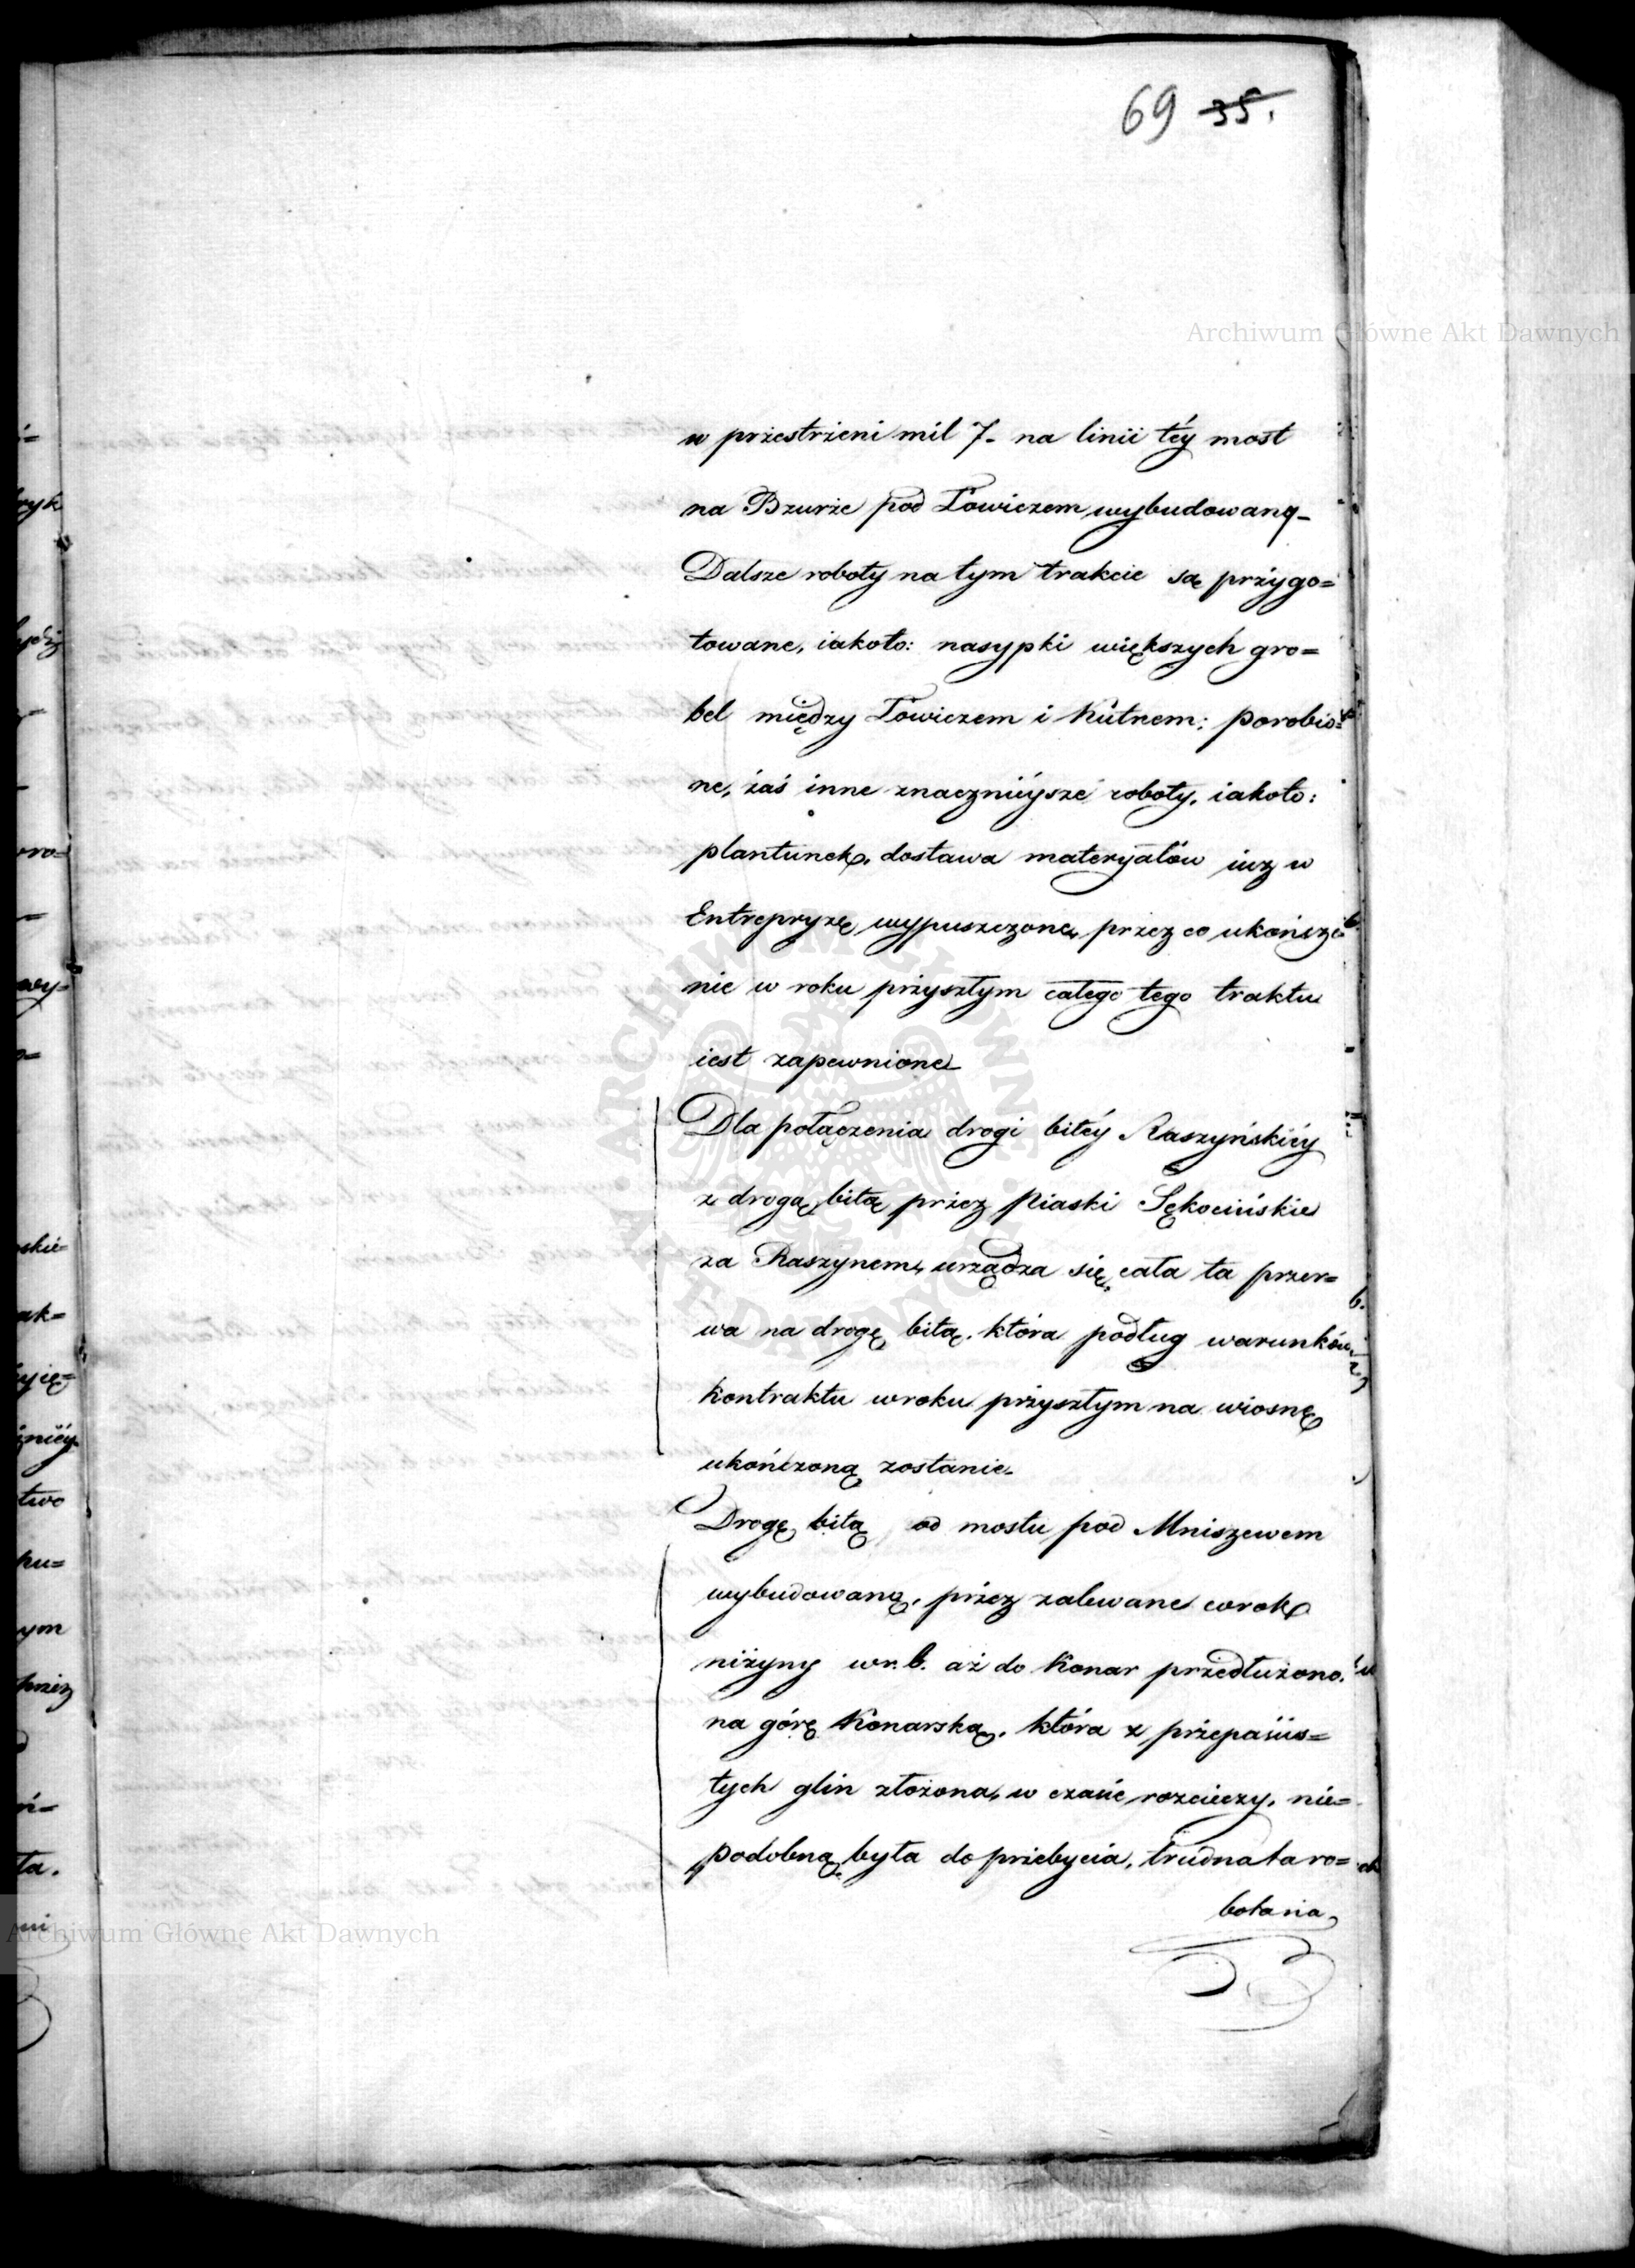 69 35.
Archiwum Główne Akt Dawnych
w przestrzeni mil 7- na linii téy most
na Bzurze pod Łowiczem wybudowany-
Dalsze roboty na tym trakcie są przygo=
towane, iakoto: nasypki większych gro=
bel między Łowiczem i Kutnem; porobio=
ne, zaś inne znacznieysze roboty, iakoto:
plantunek, dostawa materyałów iuz w
Entrepryzę wypuszczone, przez co ukończe
nie w roku przyszłym całego tego traktu
iest zapewnione
Dla połączenia drogi bitéy Raszyńskiéy
z drogą bitą przez Piaski Sękocińskie
za Raszynem, urządza się cała ta przer=
wa na drogę bitą, która podług warunków
kontraktu w roku przyszłym na wiosnę
ukończoną zostanie.
Drogę bitą od mostu pod Mniszewem
wybudowaną, przez zalewane corok
niżyny w r. b. aż do Konar przedłużono.
na górę Konarską, która z przepaśis=
tych glin złożona, w czasie rozcieczy, nie=
podobną była do przebycia, trudna ta ro=
bota na
Archiwum Główne Akt Dawnych
ARCHIWUM GŁÓWNE AKT DAWNYCH